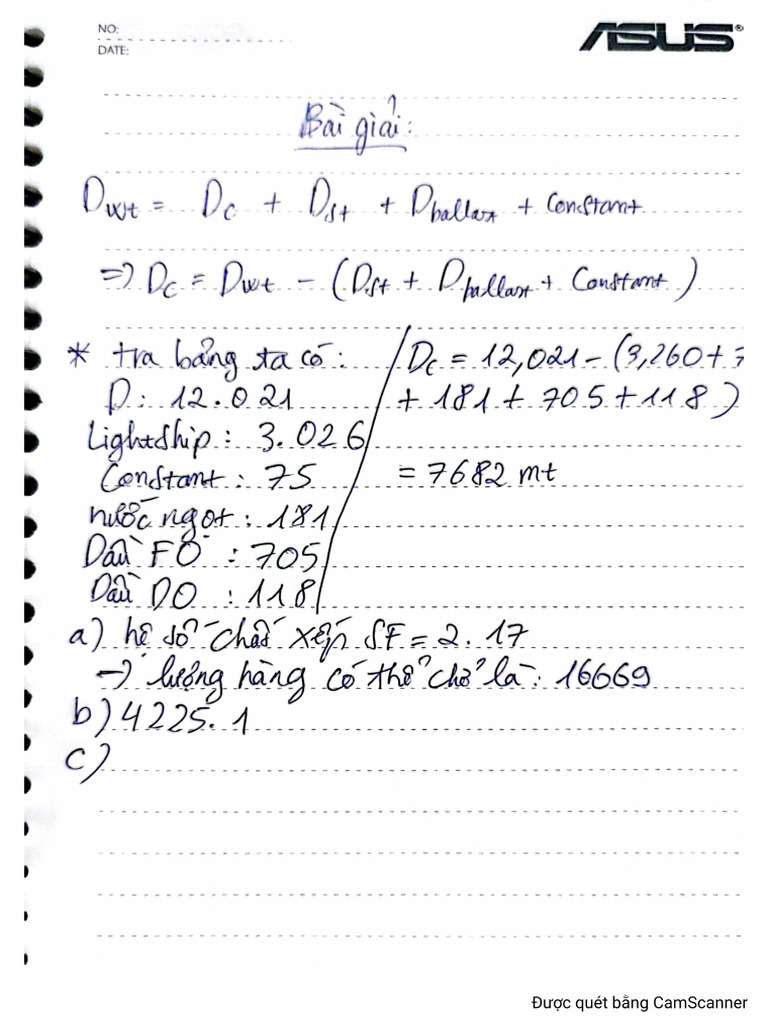 NO:
DATE:
ASUS®
Bài giải:
Dwt = Dc + Dst + Dballast + Constant
=> Dc = Dwt - (Dst + Dballast + Constant)
* tra bảng ta có:
D: 12.021
Lightship: 3.026
Constant: 75
nước ngọt: 181
Dầu FO: 705
Dầu DO: 118
Dc = 12,021 - (3,260 + 7
+ 181 + 705 + 118)
= 7682 mt
a) hệ số chất xếp SF = 2.17
-> lượng hàng có thể chở là: 16669
b) 4225.1
c)
Được quét bằng CamScanner